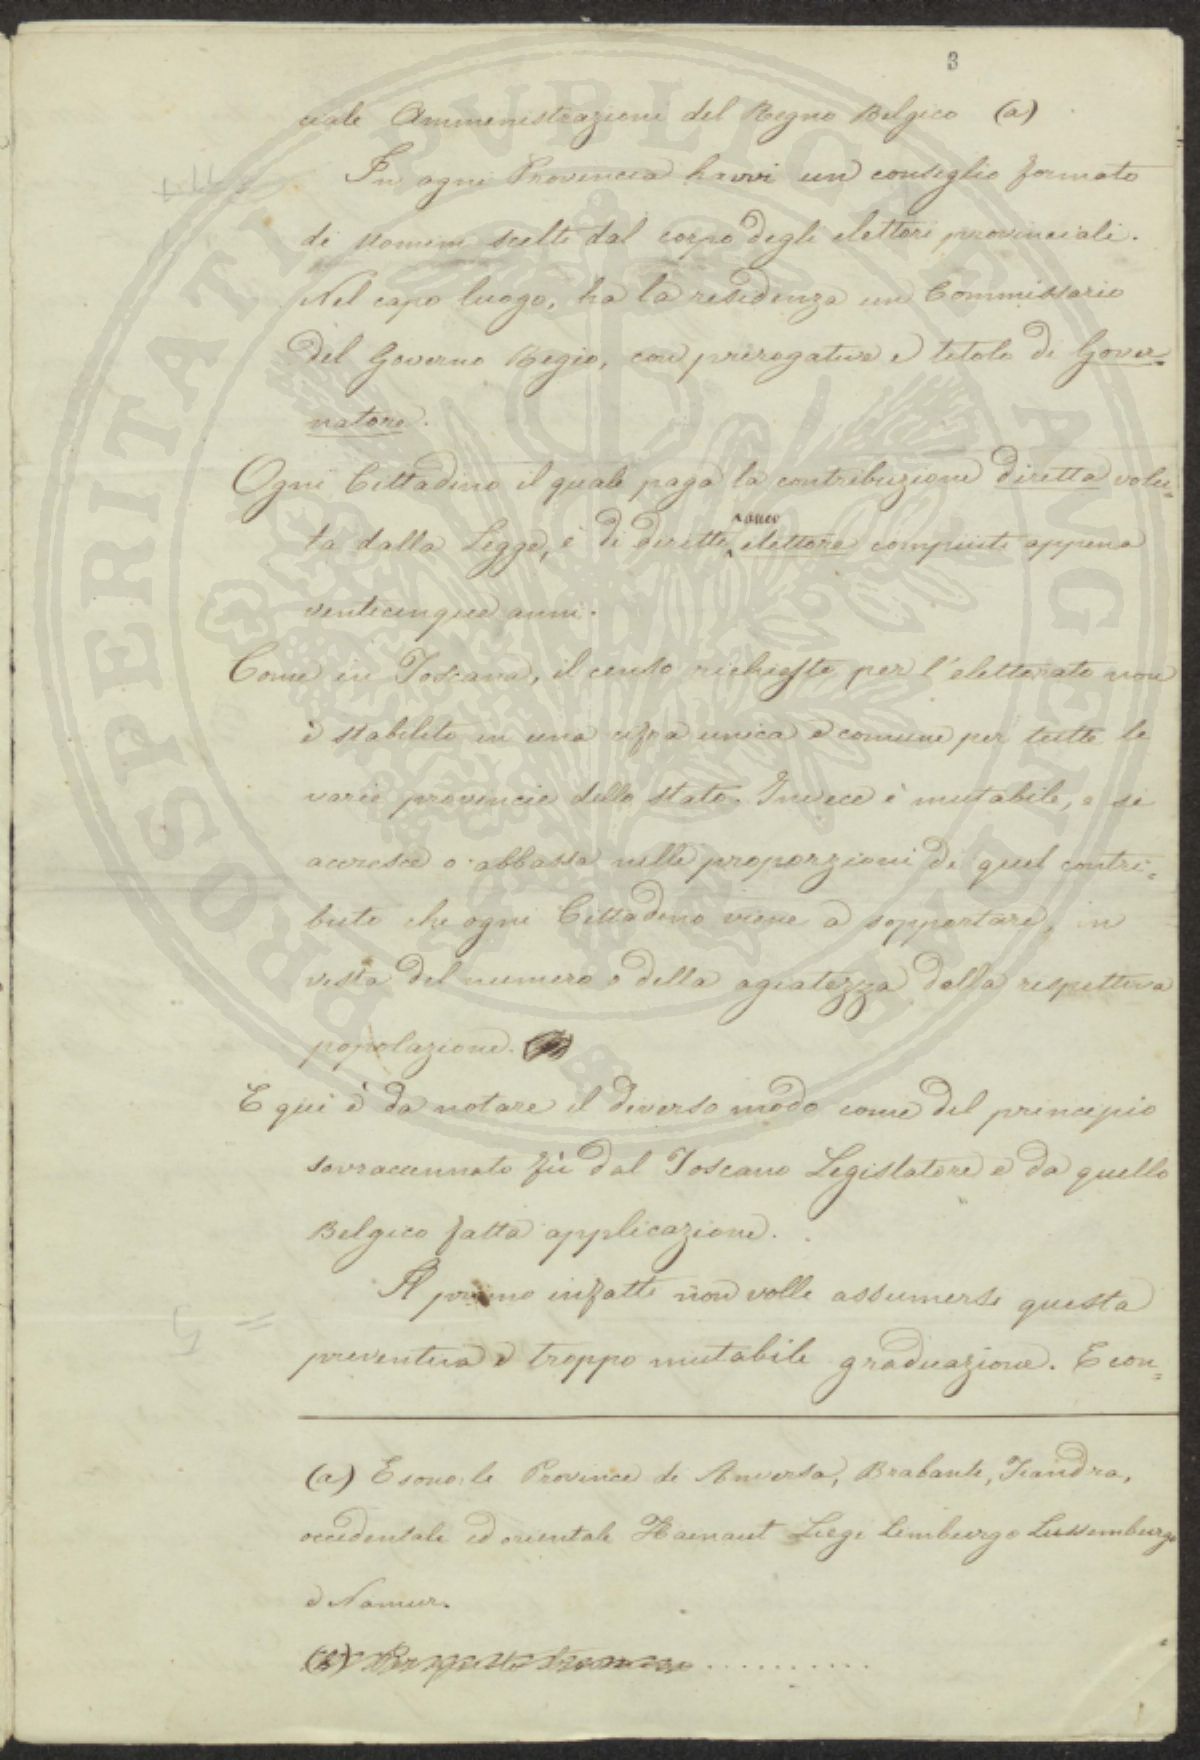 3
ciale Amministrazioni del Regno Belgico (a)
In ogni Provincia havvi un consiglio formato
di uomini scelti dal corpo degli elettori provinciali.
Nel capo luogo, ha la residenza un Commissario
del Governo Regio, con prerogative e titolo di Gover=
natore.
Ogni Cittadino il quale paga la contribuzione diretta volu=
ta dalla Legge, è di diritto elettore compiuti appena
venticinque anni.
Come in Toscana, il censo richiesto per l'elettorato non
è stabilito in una cifra unica e comune per tutte le
varie provincie dello stato. Invece è mutabile, e si
accresce o abbassa nelle proporzioni di quel contri=
buto che ogni Cittadino viene a sopportare, in
vista del numero e della agiatezza della respettiva
popolazione.
E qui è da notare il diverso modo come del principio
sovraccennato fù dal Toscano Legislatore e da quello
Belgico fatta applicazione.
Il primo infatti non volle assumersi questa
preventiva e troppo mutabile graduazione. E con=
(a) E sono: le Province di Anversa, Brabante, Fiandra,
occidentale ed orientale Hainaut Liegi Limburgo Lussemburgo
e Namur.
(b)
PROSPERITATI PVBLICAE AVGENDAE